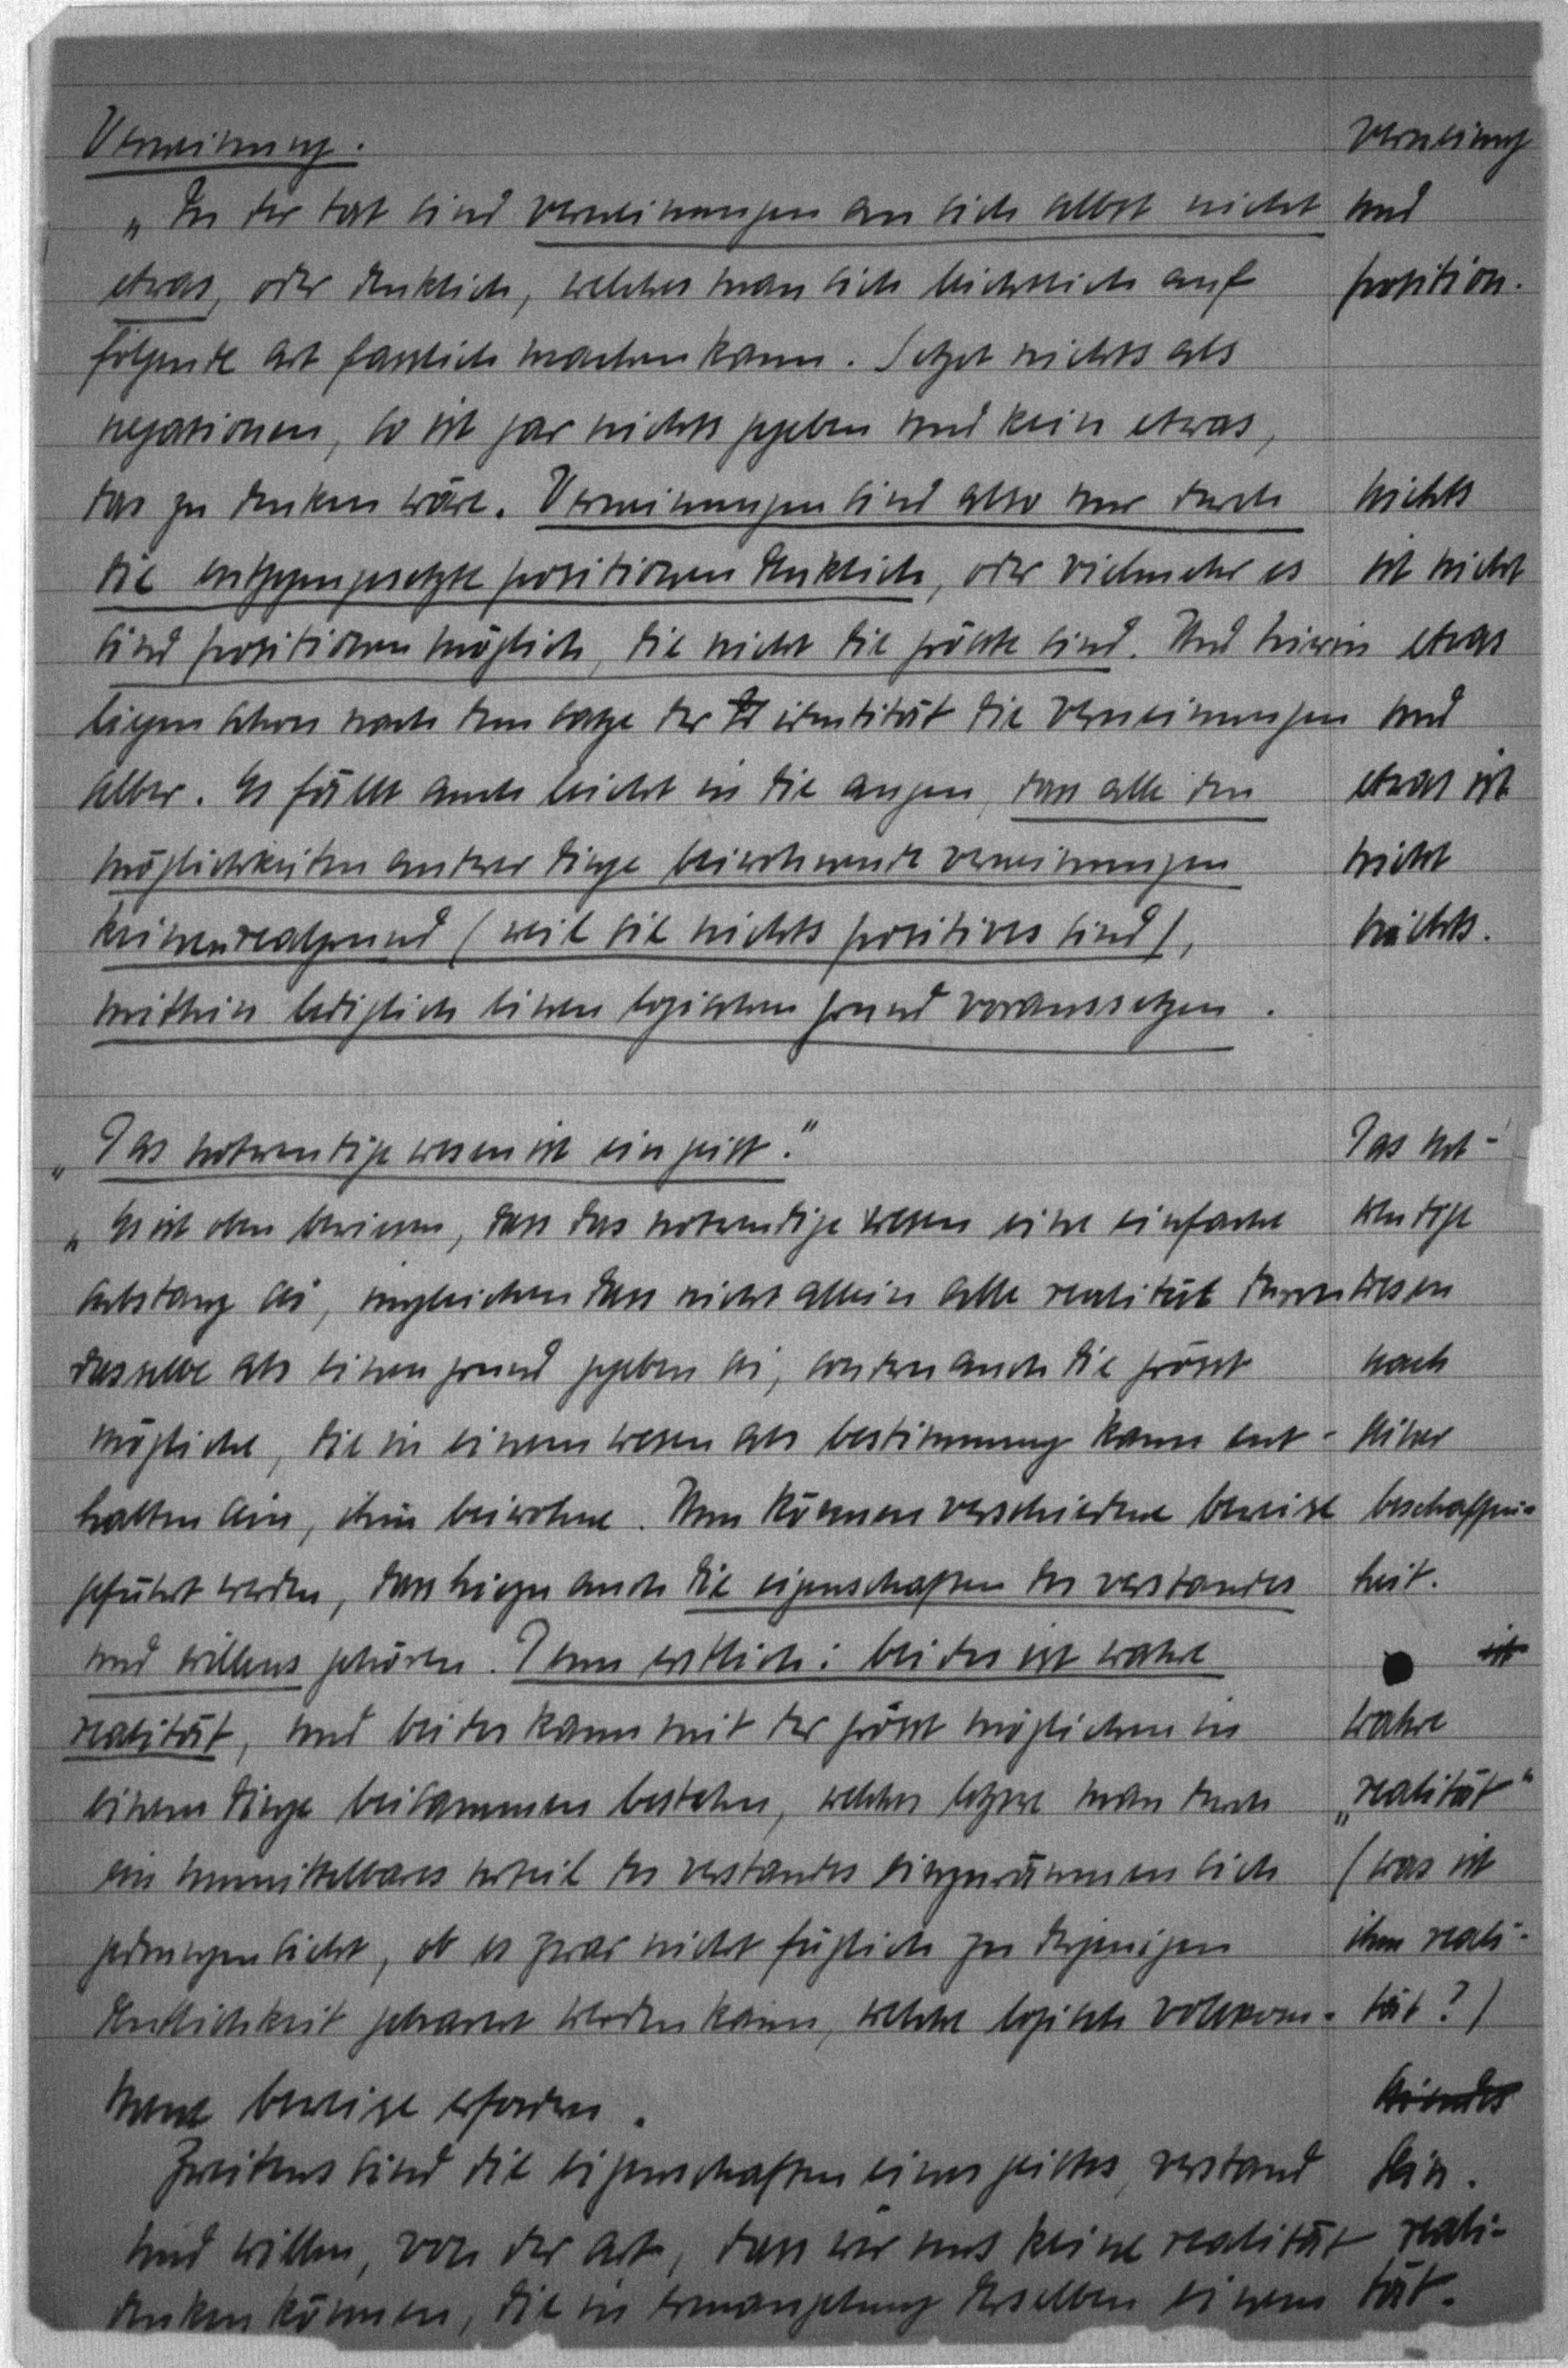 Verneinung.
„In der tat sind verneinungen an sich selbst nicht
etwas, oder denklich, welches man sich leichtlich auf
folgende art fasslich machen kann. Setzet nichts als
negationen, so ist gar nichts gegeben und kein etwas,
das zu denken wäre. Verneinungen sind also nur durch
die entgegengesetzte positionen denklich, oder vielmehr es
sind positionen möglich, die nicht die grösste sind. Und hierin
liegen schon nach dem satze der identität die verneinungen
selber. Es fällt auch leicht in die augen, dass alle den
möglichkeiten andrer dinge beiwohnende verneinungen
keinen realgrund (weil sie nichts positives sind),
mithin lediglich einen logischen grund voraussetzen.
„Das notwendige wesen ist ein geist."
„Es ist oben bewiesen, dass das notwendige wesen eine einfache
substanz sei, imgleichen dass nicht allein alle realität durch
dasselbe als einen grund gegeben sei, sondern auch die grösst
mögliche, die in einem wesen als bestimmung kann ent-
halten sein, ihm beiwohne. Nun können verschiedene beweise
geführt werden, dass hiezu auch die eigenschaften des verstandes
und willens gehören. Denn erstlich: beides ist wahre
realität, und beides kann mit der grösst möglichen in
einem dinge beisammen bestehen, welches letzere man durch
ein unmittelbares urteil des verstandes einzuräumen sich
gedrungen sieht, ob es zwar nicht füglich zu derjenigen
deutlichkeit gebracht werden kann, welche logisch vollkom-
mene beweise erfordern.
Zweitens sind die eigenschaften eines geistes, verstand
und willen, von der art, dass wir uns keine realität
denken können, die in ermangelung derselben einem
verneinung
und
position.
nichts
ist nicht
etwas
und
etwas ist
nicht
nichts.
Das not-
wendige
wesen
nach
seiner
beschaffen-
heit.
ist
wahre
„realität"
(was ist
ihm reali-
tät?)
sein.
reali-
tät.